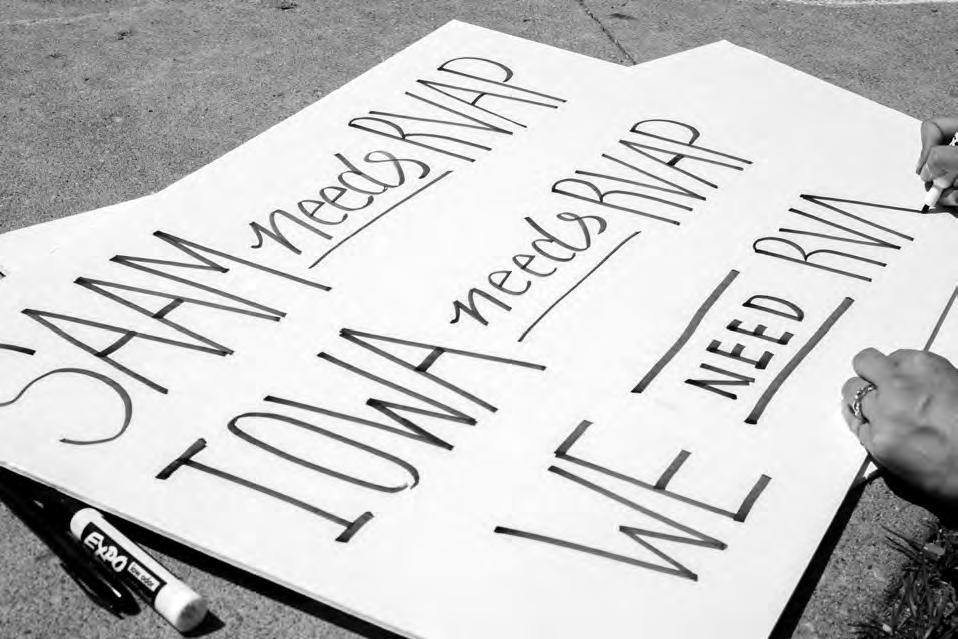 SAAM needs RVAP
IOWA needs RVAP
WE NEED RVA
EXPO
low odor